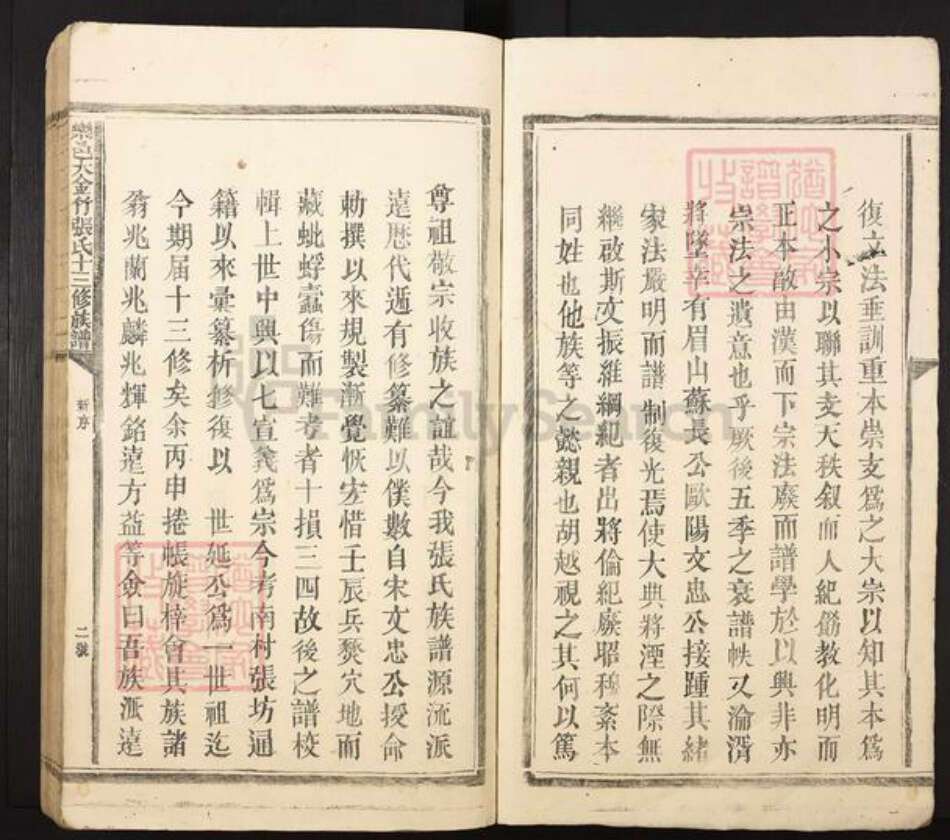 復立法垂訓重本崇支爲之大宗以知其本爲
之小宗以聯其支天秩叙而人紀脩教化明而
正本敵由漢而下宗法廢而譜學於以興非亦
宗法之遺意也乎厥後五季之衰譜帙又淪湑
將墜幸有眉山蘇長公歐陽文忠公接踵其緒
家法嚴明而譜制復光焉使大典將湮之際無
繼啟斯文振維綱紀者出將倫紀廢昭穆紊本
同姓也他族等之懿親也胡越視之其何以篤
尊祖敬宗收族之誼哉今我張氏族譜源流派
遠歴代遞有修纂難以僕數自宋文忠公授命
勅撰以來規製漸覺恢宏惜壬辰兵燹穴地而
藏蚍蜉蠹傷而難考者十損三四故後之譜校
輯上世中興以七宣義爲宗今考南村張坊逼
籍以來彙纂析修復以 世延公爲一世祖迄
今期届十三修矣余丙申捲帳旋梓會其族諸
翁兆蘭兆麟兆輝銘遠方益等僉曰吾族派遠
樂邑大金竹張氏十三修族譜
新序
二號
FamilySearch